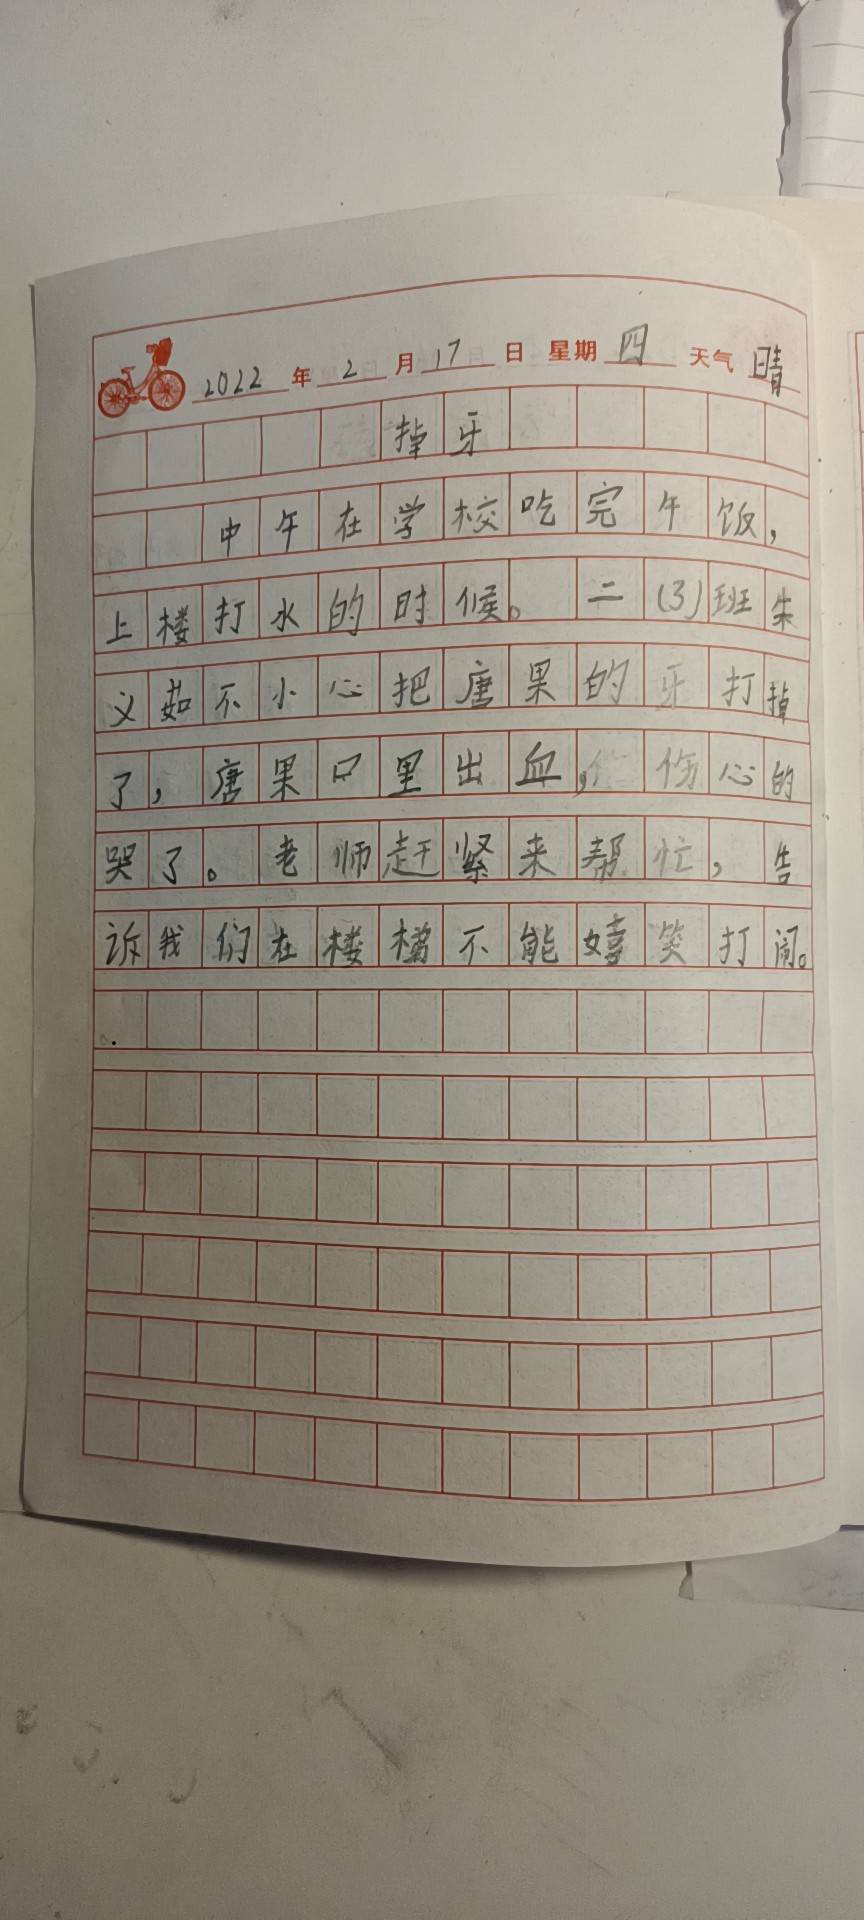 2022年2月17日 星期四 天气晴
掉牙
中午在学校吃完午饭,
上楼打水的时候。二(3)班朱
义茹不小心把唐果的牙打掉
了,唐果口里出血,伤心的
哭了。老师赶紧来帮忙,告
诉我们在楼梯不能嬉笑打闹。